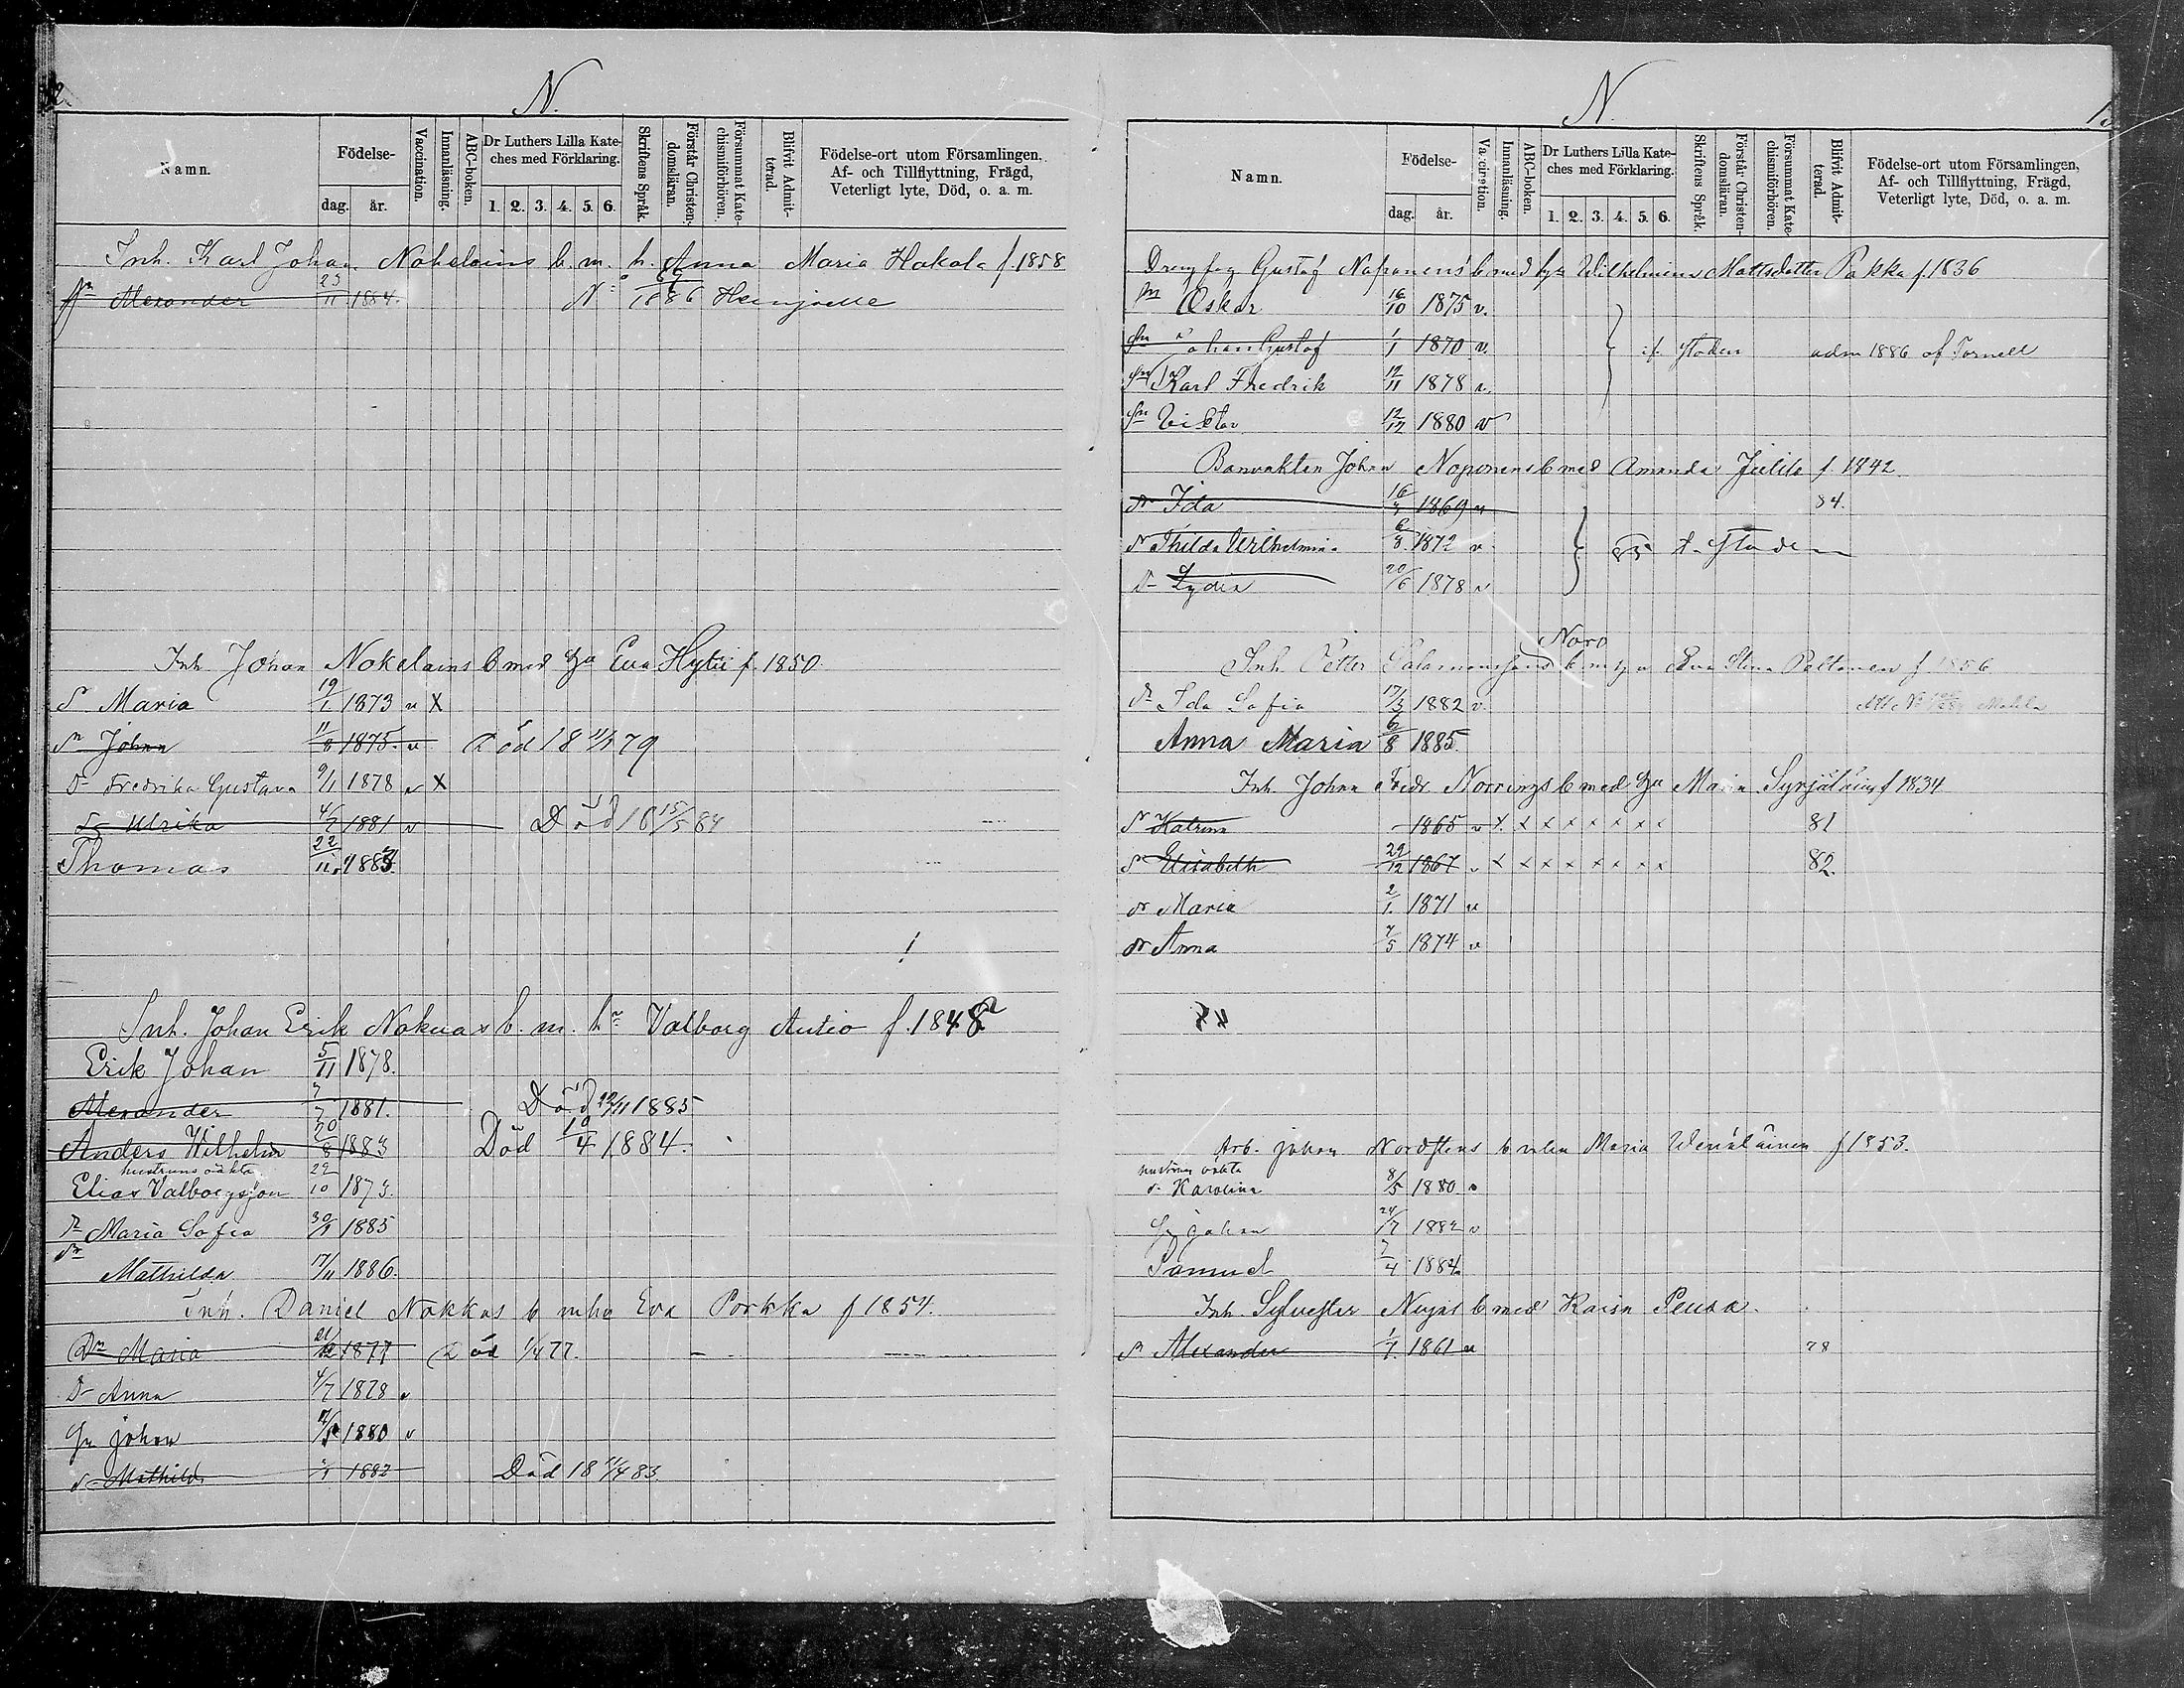 N.
Namn.
Födelse-
dag. år.
Vaccination.
Innanläsning.
ABC-boken.
Dr Luthers Lilla Kate-
ches med Förklaring.
1. 2. 3. 4. 5. 6.
Skriftens Språk.
Förstår Christen-
domsläran.
Försummat Kate-
chismiförhören.
Blifvit Admit-
terad.
Födelse-ort utom Församlingen.
Af- och Tillflyttning, Frägd,
Veterligt lyte, Död, o. a. m.
Inh. Karl Johan Nokelains b. m. h. Anna Maria Hakala f. 1858
Alexander 23/11 1884. 1886 Heinjoelle
Inh. Johan Nokelains b med Eva Hytti f. 1850
Maria 19/1 1873 v X
Johan 11/8 1875 v Död 18 79
Fredrika Gustava 9/1 1878 v X
Ulrika 4/7 1881 v Död 18 15/5 84
Thomas 22/11
Inh. Johan Erik Nokuas b. m. Valborg Autio f. 1848
Erik Johan 5/11 1878.
Alexander 7/7 1881. Död 1885
Anders Wilhelm 20/8 1883 Död 19/4 1884.
hustruns oäkta
Elias Valborgsson 22/10 1873.
Maria Sofia 1885
Mathilda 17/11 1886.
Inh. Daniel Nokkas b Eva Porkka f 1854.
Maria 1877 Död 1/4 77.
Anna 4/7 1878 v
johan 1880 v
Mathild 1882 Död 18 83
N.
Namn.
Födelse-
dag. år.
Vaccination.
Innanläsning.
ABC-boken.
Dr Luthers Lilla Kate-
ches med Förklaring.
1. 2. 3. 4. 5. 6.
Skriftens Språk.
Förstår Christen-
domsläran.
Försummat Kate-
chismiförhören.
Blifvit Admit-
terad.
Födelse-ort utom Församlingen,
Af- och Tillflyttning, Frägd,
Veterligt lyte, Död, o. a. m.
Gustaf Naponens b med Wilhelmina Mattsdotter Pakka f. 1836
Oskar 16/10 1875 v.
Johan Gustaf 1/1 1870 v. staden adm 1886 af Tornell
Karl Fredrik 12/11 1878 v.
Viktor 12/12 1880 v
Banvakten Johan Noponens b med Amanda f. 1842
Ida 1869 v 84.
Thilda Wilhelmina 6/8 1872 v. staden
Lydia 20/6 1878 v
Noro
Inh. Petter b m Eva Stina Peltonen f 1856
Ida Sofia 17/3 1882 v.
Anna Maria 6/8 1885.
Inh. Johan Fredr Norrings b med Maria f 1834
Katrina 1865 v x x x x x x x x 81
Elisabeth 29/12 1867 v x x x x x x x x 82.
Maria 2/1 1871 v
Anna 7/5 1874 v
Arb. johan Nordstens b Maria f 1853.
hustruns oäkta
Karolina 8/5 1880 v
johan 24/7 1882 v
Samuel 7/4 1884
Inh. Sylvester b med Kaisa Peusa.
Alexander 1/7 1861 v 78